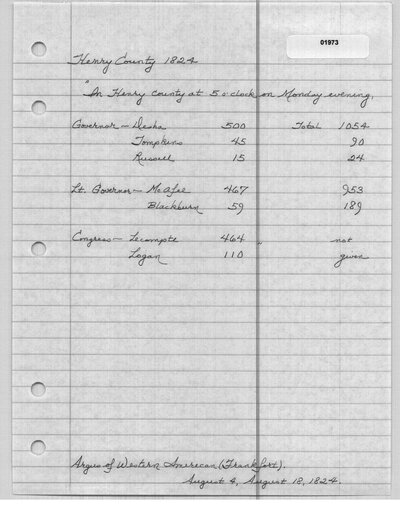 01973
Henry County 1824
"In Henry county at 5 o'clock on Monday evening,
Governor — Desha 500 Total 1054
Tompkins 45 90
Russell 15 24
Lt. Governor — McAfee 467 953
Blackburn 59 189
Congress — Lecompte 464 " not
Logan 110 given
Argus of Western American (Frankfort).
August 4, August 18, 1824.